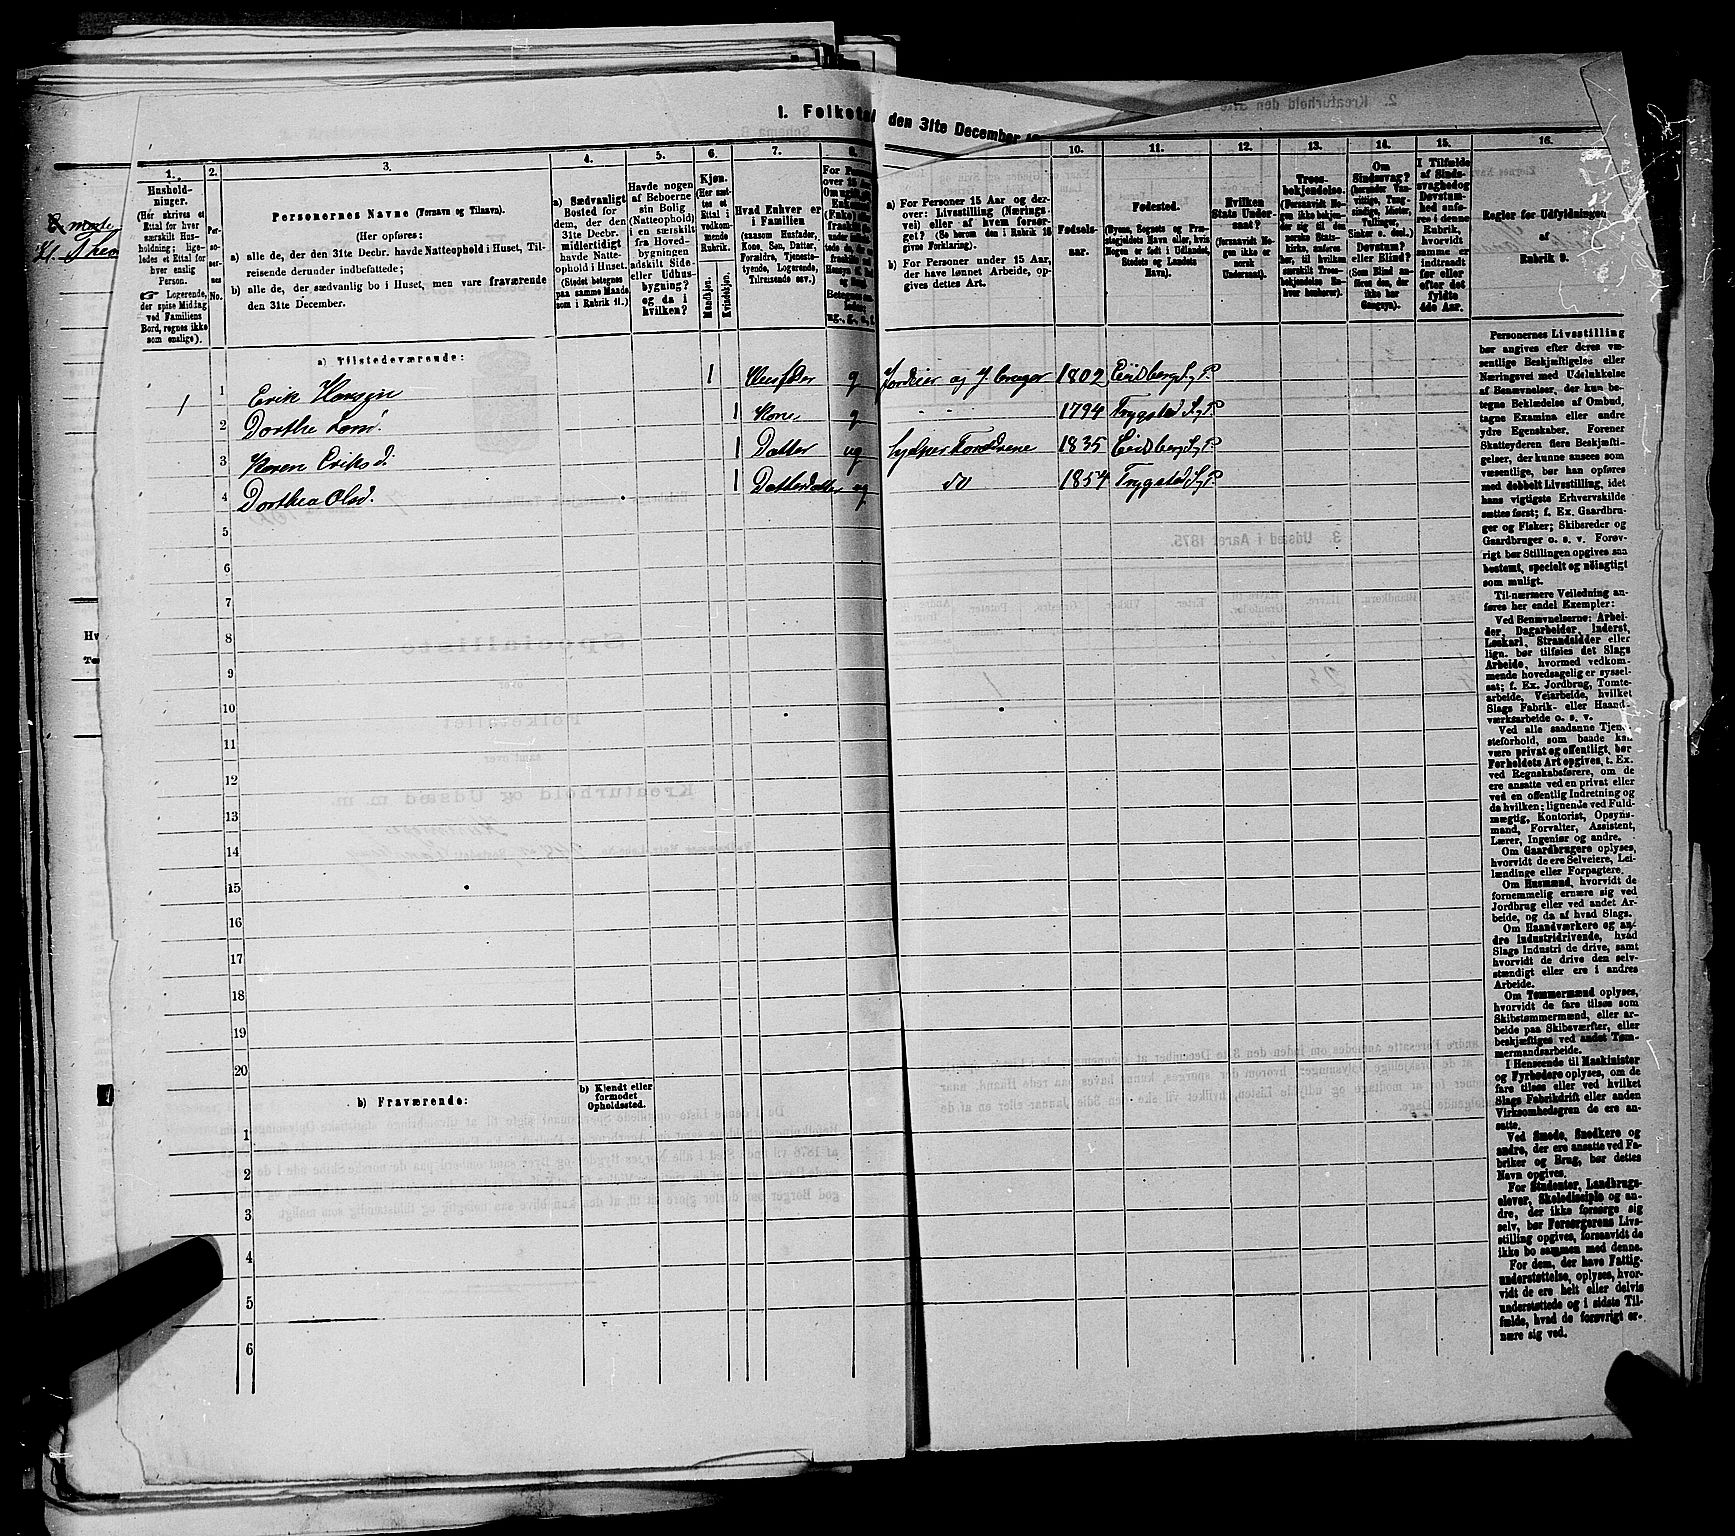 1. Folketal den 31te December
1. 2. 3. 4. 5. 6. 7. 8. 10. 11. 12. 13. 14. 15. 16.
Hushold-
ninger.
(Her skrives et
Ettal for hver
særskilt Hus-
holdning; lige-
ledes et Ettal for
hver enslig
Person.
☞ Logerende,
der spise Middag
ved Familiens
Bord, regnes ikke
som enslige).
Per-
so-
ner-
nes
No.
Personernes Navne (Fornavn og Tilnavn).
(Her opføres:
a) alle de, der den 31te Decbr. havde Natteophold i Huset, Til-
reisende derunder indbefattede;
b) alle de, der sædvanlig bo i Huset, men vare fraværende
den 31te December.
a) Sædvanligt
Bosted for
dem, der den
31te Decbr.
midlertidigt
havde Natte-
ophold i Huset.
(Stedet betegnes
paa samme Maade
som i Rubrik 11.)
Havde nogen
af Beboerne
sin Bolig
(Natteophold)
i en særskilt
fra Hoved-
bygningen
adskilt Side-
eller Udhus-
bygning?
og da i
hvilken?
Kjøn.
(Her sæt-
tes et
Ettal i
vedkom-
mende
Rubrik.
Mandkjøn.
Kvindekjøn.
Hvad Enhver er
i Familien
(saasom Husfader,
Kone, Søn, Datter,
Forældre, Tjeneste-
tyende, Logerende,
Tilreisende osv.)
a) For Personer 15 Aar og der-
over: Livsstilling (Nærings-
vei) eller af hvem forsør-
get? (Se herom den i Rubrik 16
givne Forklaring).
b) For Personer under 15 Aar,
der have lønnet Arbeide, op-
gives dettes Art.
Fødsels-
aar.
Fødested.
(Byens, Sognets og Præ-
stegjeldets Navn eller, hvis
Nogen er født i Udlandet,
Stedets og Landets
Navn).
Hvilken
Stats Under-
saat?
(forsaavidt No-
gen ikke er
norsk
Undersaat).
Troes-
bekjendelse.
(Forsaavidt No-
gen ikke bekjen-
der sig til den
norske Stats-
kirke, anføres
her det Troes-
bekjendelse En-
hver henhører).
Om
Sindssvag?
(herunder Van-
vittige, Tung-
sindige, Idioter,
Tullinger,
Sinker o. desl.)
Døvstum?
eller Blind?
(Som Blind an-
føres den, der
ikke har
Gangsyn).
I Tilfælde
af Sinds-
svaghed og
Døvstum-
hed anfø-
res i denne
Rubrik,
hvorvidt
samme er
indtraadt
før eller
efter det
fyldte
4de Aar.
Regler for Udfyldningen
af
Rubrik 9.
a) Tilstedeværende:
1 1 Erik Hansen 1 Husfader g Jordeier og J. bruger 1802 Eidsberg S, P.
2 Dorthe Larsd. 1 Kone g 1794 Trygstad S, P
3 Karen Eriksd: 1 Datter ug hjelper Forældrene 1835 Eidsberg S, P
4 Dorthea Olsd. 1 Datterdatter ug do 1854 Trygstad S, P
5
6
7
8
9
10
11
12
13
14
15
16
17
18
19
20
b) Fraværende:
b) Kjendt eller
formodet
Opholdssted.
1
2
3
4
5
6
Personernes Livsstilling
bør angives efter deres væ-
sentlige Beskjæftigelse eller
Næringsvei med Udelukkelse
af Benævnelser, der kun be-
tegne Beklædelse af Ombud,
tagne Examina eller andre
ydre Egenskaber. Forener
Skatteyderen flere Beskjæfti-
gelser, der kunne ansees som
væsentlige, bør han opføres
med dobbelt Livsstilling, idet
hans vigtigste Erhvervskilde
sættes først; f. Ex. Gaardbru-
ger og Fisker; Skibsreder og
Gaardbruger o. s. v. Forøv-
rigt bør Stillingen opgives saa
bestemt, specielt og nøiagtigt
som muligt.
Til nærmere Veiledning an-
føres her endel Exempler:
Ved Benævnelserne: Arbei-
der, Dagarbeider, Inderst,
Løskarl, Strandsidder eller
lign. bør tilføies det Slags
Arbeide, hvormed vedkom-
mende hovedsagelig er syssel-
sat; f. Ex. Jordbrug, Tomte-
arbeide, Veiarbeide, hvilket
Slags Fabrik- eller Haand-
værksarbeide o. s. v.
Ved alle saadanne Tjene-
steforhold, som baade kan
være privat og offentligt, bør
Forholdets Art opgives, t. Ex.
ved Regnskabsførere, om de
ere ansatte ved en privat eller
ved en offentlig Indretning og
da hvilken; lignende ved Fuld-
mægtig, Kontorist, Opsyns-
mand, Forvalter, Assistent,
Lærer, Ingeniør og andre.
Om Gaardbrugere oplyses,
hvorvidt de ere Selveiere, Lei-
lændinge eller Forpagtere.
Om Husmænd, hvorvidt de
fornemmelig ernære sig ved
Jordbrug eller ved andet Ar-
beide, og da af hvad Slags.
Om Haandværkere og an-
dre Industridrivende, hvad
Slags Industri de drive, samt
hvorvidt de drive den selv-
stændigt eller ere i andres
Arbeide.
Om Tømmermænd oplyses,
hvorvidt de fare tilsøs som
Skibstømmermænd, eller ar-
beide paa Skibsværfter, eller
beskjæftiges ved andet Tøm-
mermandsarbeide.
I Henseende til Maskinister
og Fyrbødere oplyses, om de
fare tilsøs eller ved hvilket
Slags Fabrikdrift eller anden
Virksomhedsgren de ere an-
satte.
Ved Smede, Snedkere og
andre, der ere ansatte ved Fa-
briker og Brug, bør dettes
Navn opgives.
For Studenter, Landbrugs-
elever, Skoledisciple og an-
dre, der ikke forsørge sig
selv, bør Forsørgerens Livs-
stilling opgives, forsaavidt de
ikke bo sammen med denne.
For dem, der have Fattig-
understøttelse, oplyses, hvor-
vidt de ere helt eller delvis
understøttede og i sidste Til-
fælde, hvad de forøvrigt er-
nære sig ved.